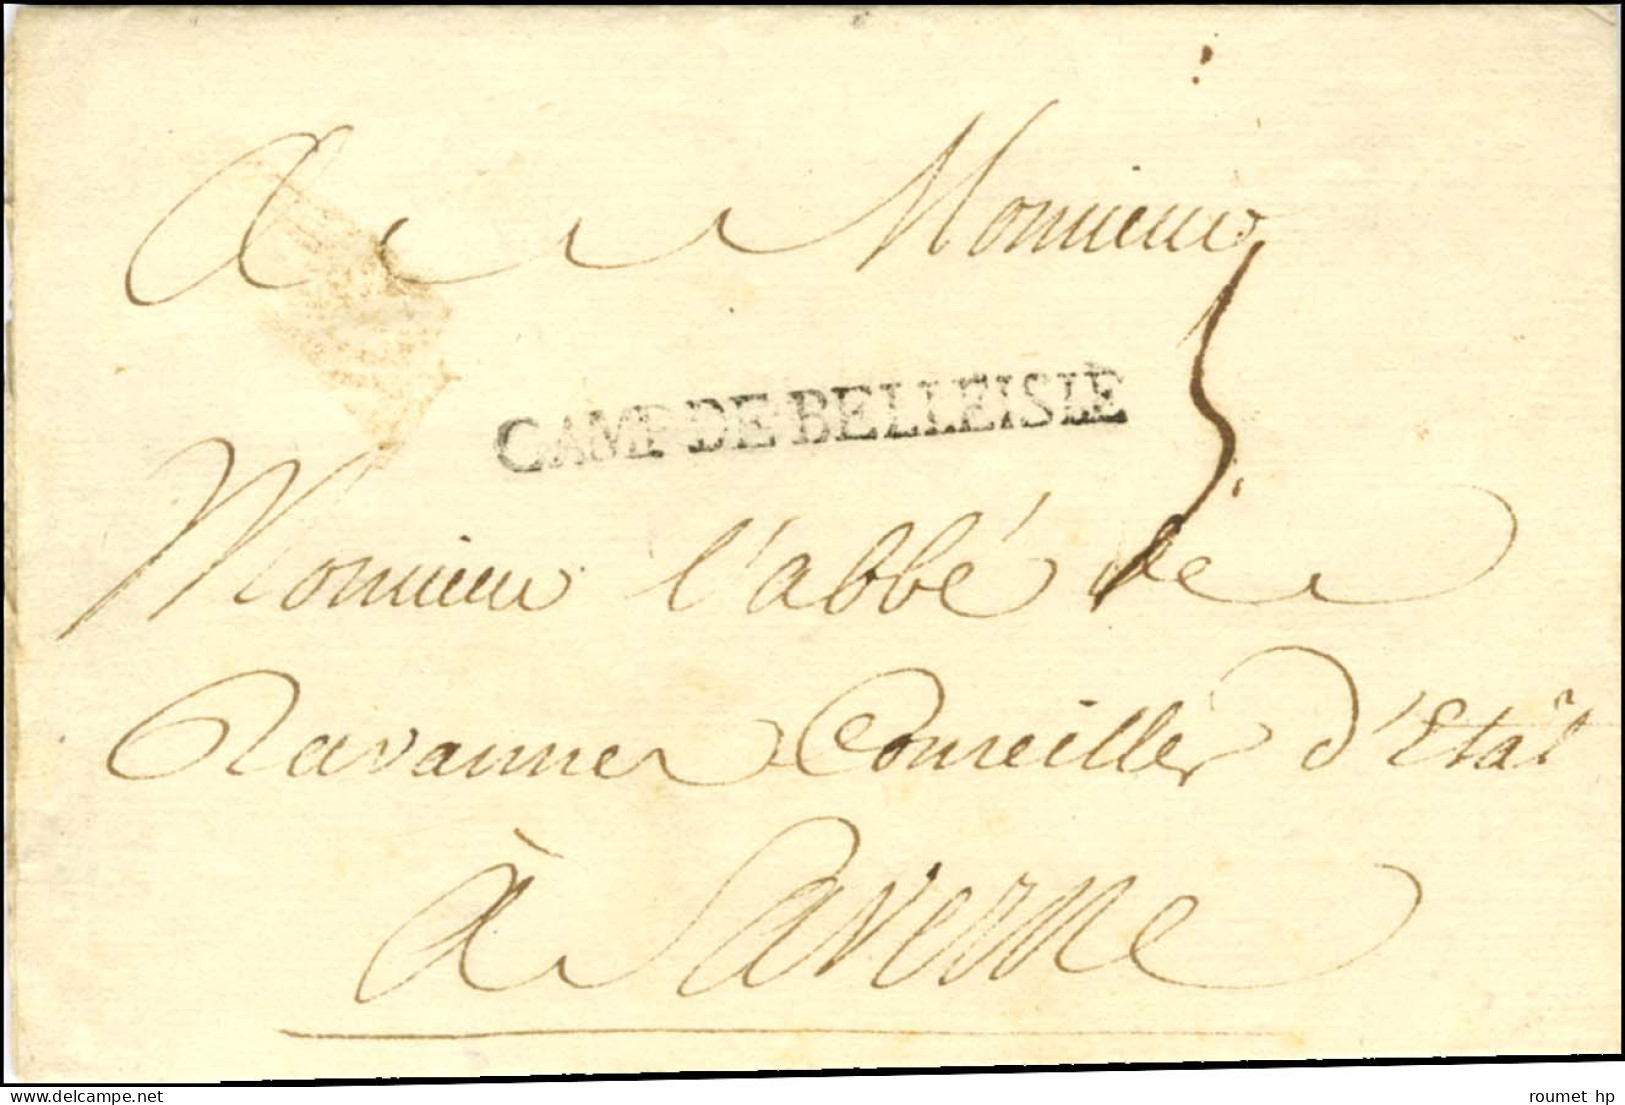 A Monsieur
CAMP DE BELLEISLE
5
Monsieur l'abbé de
Ravannes Conseiller d'Etat
à Saverne
delcampe.net
roumet hp